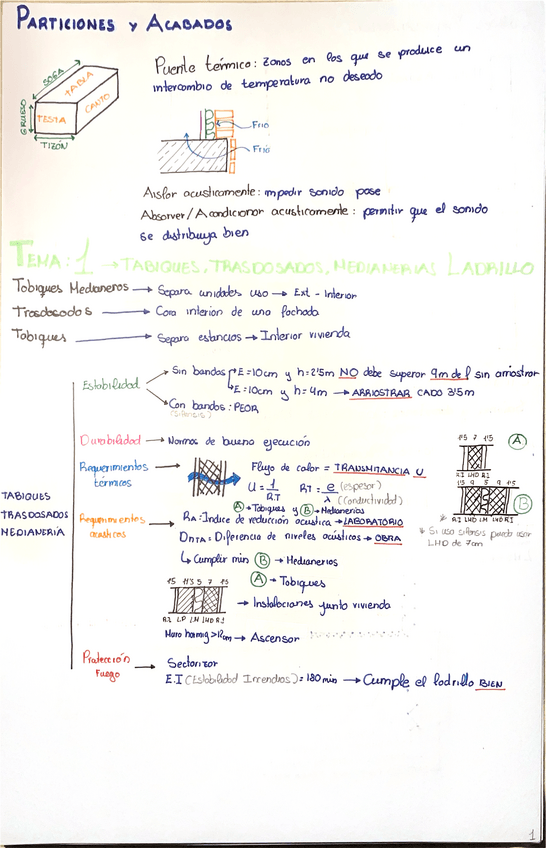 PARTICIONES Y ACABADOS
SOGA
TABLA
CANTO
GRUESO
TESTA
TIZÓN
Puente térmico: zonas en las que se produce un
intercambio de temperatura no deseado
Frío
Frío
Aislar acusticamente: impedir sonido pase
Absorver/Acondicionar acusticamente: permitir que el sonido
se distribuya bien
TEMA: 1 → TABIQUES, TRASDOSADOS, MEDIANERIAS LADRILLO
Tabiques Medianeros → Separa unidades uso → Ext - Interior
Trasdosados → Cara interior de una fachada
Tabiques → Separa estancias → Interior vivienda
TABIQUES
TRASDOSADOS
MEDIANERÍA
Estabilidad
Sin bandas E=10cm y h=2'5m NO debe superar 9m de l sin arriostrar
E=10cm y h=4m → ARRIOSTRAR CADA 3'5m
Con bandas: PEOR
Durabilidad → Normas de buena ejecución
Requerimientos
térmicos
Flujo de calor = TRANSMITANCIA U
U = 1/RT RT = e (espesor)/λ (Conductividad)
A → Tabiques y B → Medianerías
1'5 7 1'5 A
RI LHD RI
1'5 9 5 9 1'5 B
RI LHD LM LHD RI
* Si usa silensis puedo usar
LHD de 7cm
Requerimientos
acústicos
RA: Indice de reducción acústica → LABORATORIO
DnTA: Diferencia de niveles acústicos → OBRA
↳ Cumplir min B → Medianerias
A → Tabiques
1'5 11'5 5 7 1'5
RI LP LM LHD RI
→ Instalaciones junto vivienda
Muro hormig > 12cm → Ascensor
Protección
Fuego
Sectorizar
E.I (Estabilidad Incendios) = 180 min → Cumple el ladrillo BIEN
1